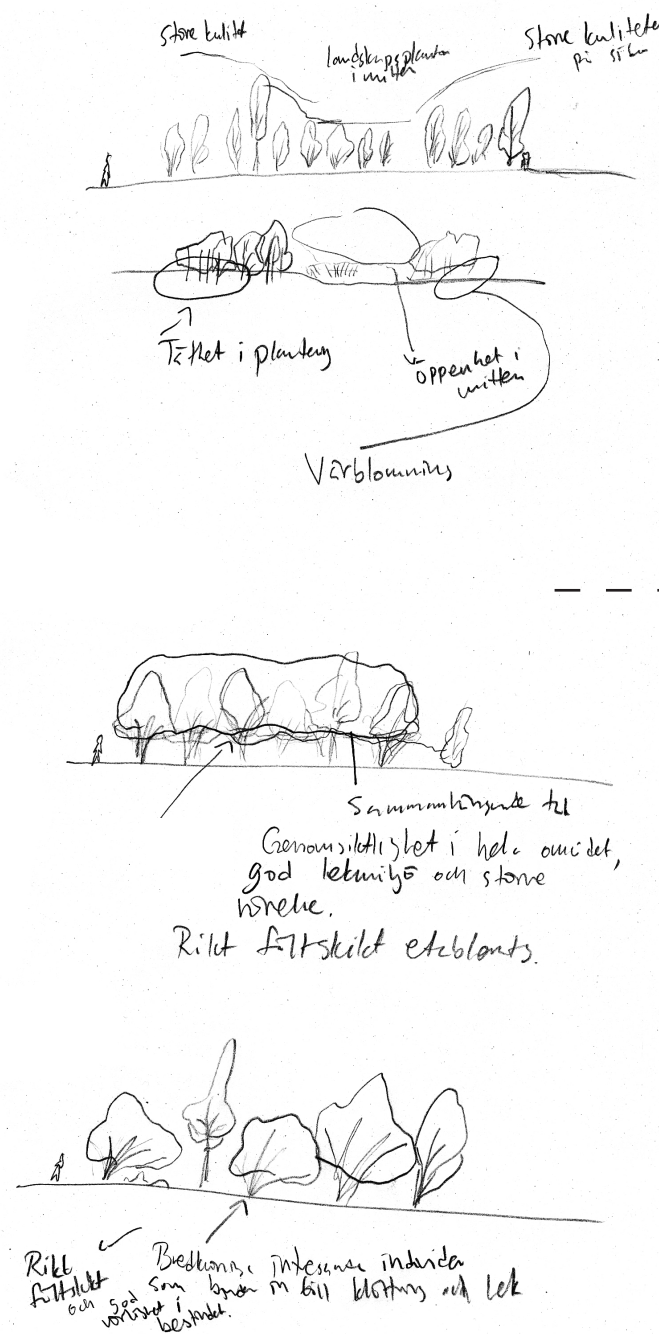 större kvalitet
landskapsplantor
i mitten
Större kvaliteter
på sidan
Täthet i plantering
Öppenhet i
mitten
Vårblomning
Sammanhängande tak
Genomsiktlighet i hela området,
god lekmiljö och större
rörelse.
Rikt fältskikt etablerats.
Rikt
fältskikt
och god
i
beståndet.
Bredkroniga intressanta individer
som bjuder in till klättring och lek